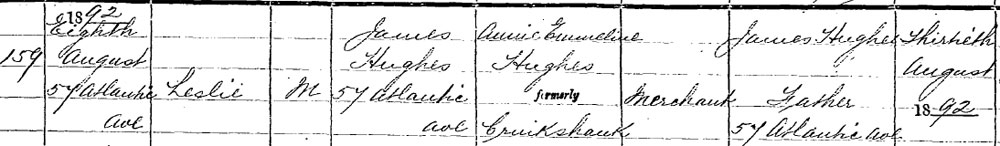 1892
Eighth James Annie Emmeline James Hughes Thirtieth
159 August Hughes Hughes August
57 Atlantic Leslie M 57 Atlantic formerly Merchant Father 1892
Ave ave Cruikshank 57 Atlantic ave